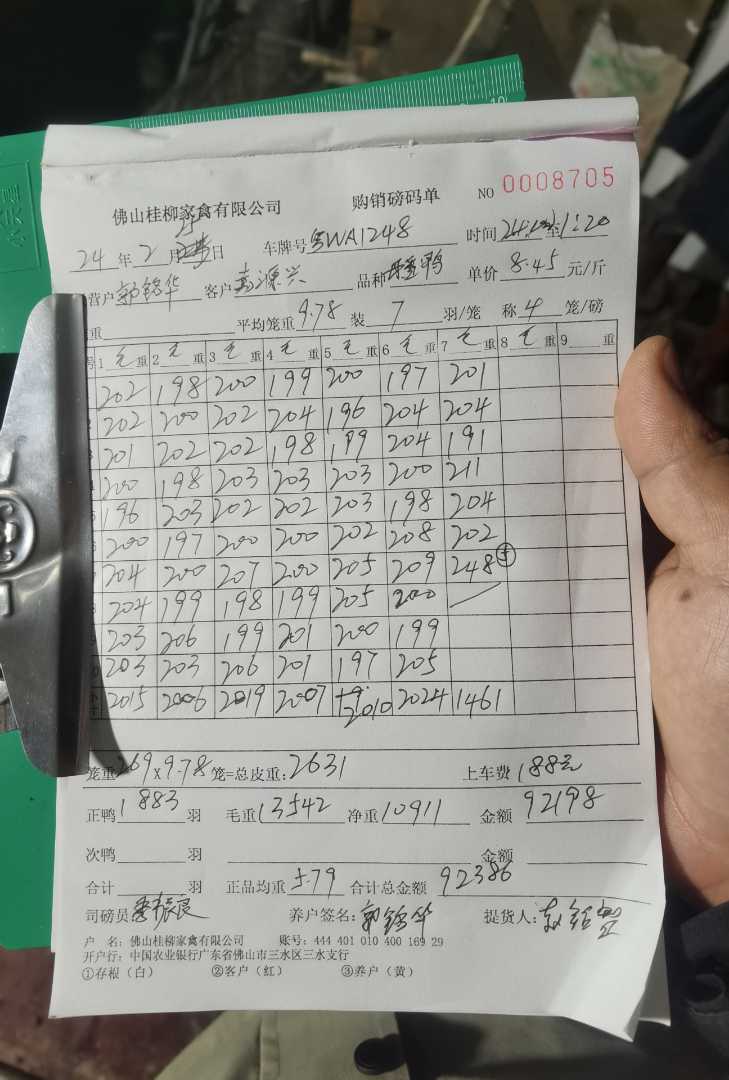 佛山桂柳家禽有限公司 购销磅码单 NO 0008705
24年2月 日 车牌号粤WA1248 时间 1:20
营户郭锦华 客户 源兴 品种 鸭 单价8.45元/斤
重 平均笼重9.78装7羽/笼 称4笼/磅
号 1毛重 2毛重 3毛重 4毛重 5毛重 6毛重 7毛重 8毛重 9 重
202 198 200 199 200 197 201
202 200 202 204 196 204 204
201 202 202 198 199 204 191
200 198 203 203 203 200 211
196 203 202 202 203 198 204
200 197 200 200 202 208 202
204 200 207 200 205 209 248⑤
204 199 198 199 205 200
203 206 199 201 200 199
203 203 206 201 197 205
2015 2006 2019 2007 2010 2024 1461
笼重269×9.78笼=总皮重:2631 上车费188元
正鸭1883羽 毛重13542 净重10911 金额92198
次鸭 羽 金额
合计 羽 正品均重5.79 合计总金额92386
司磅员 振良 养户签名:郭锦华 提货人:
户 名:佛山桂柳家禽有限公司 账号:444 401 010 400 169 29
开户行:中国农业银行广东省佛山市三水区三水支行
①存根(白) ②客户(红) ③养户(黄)